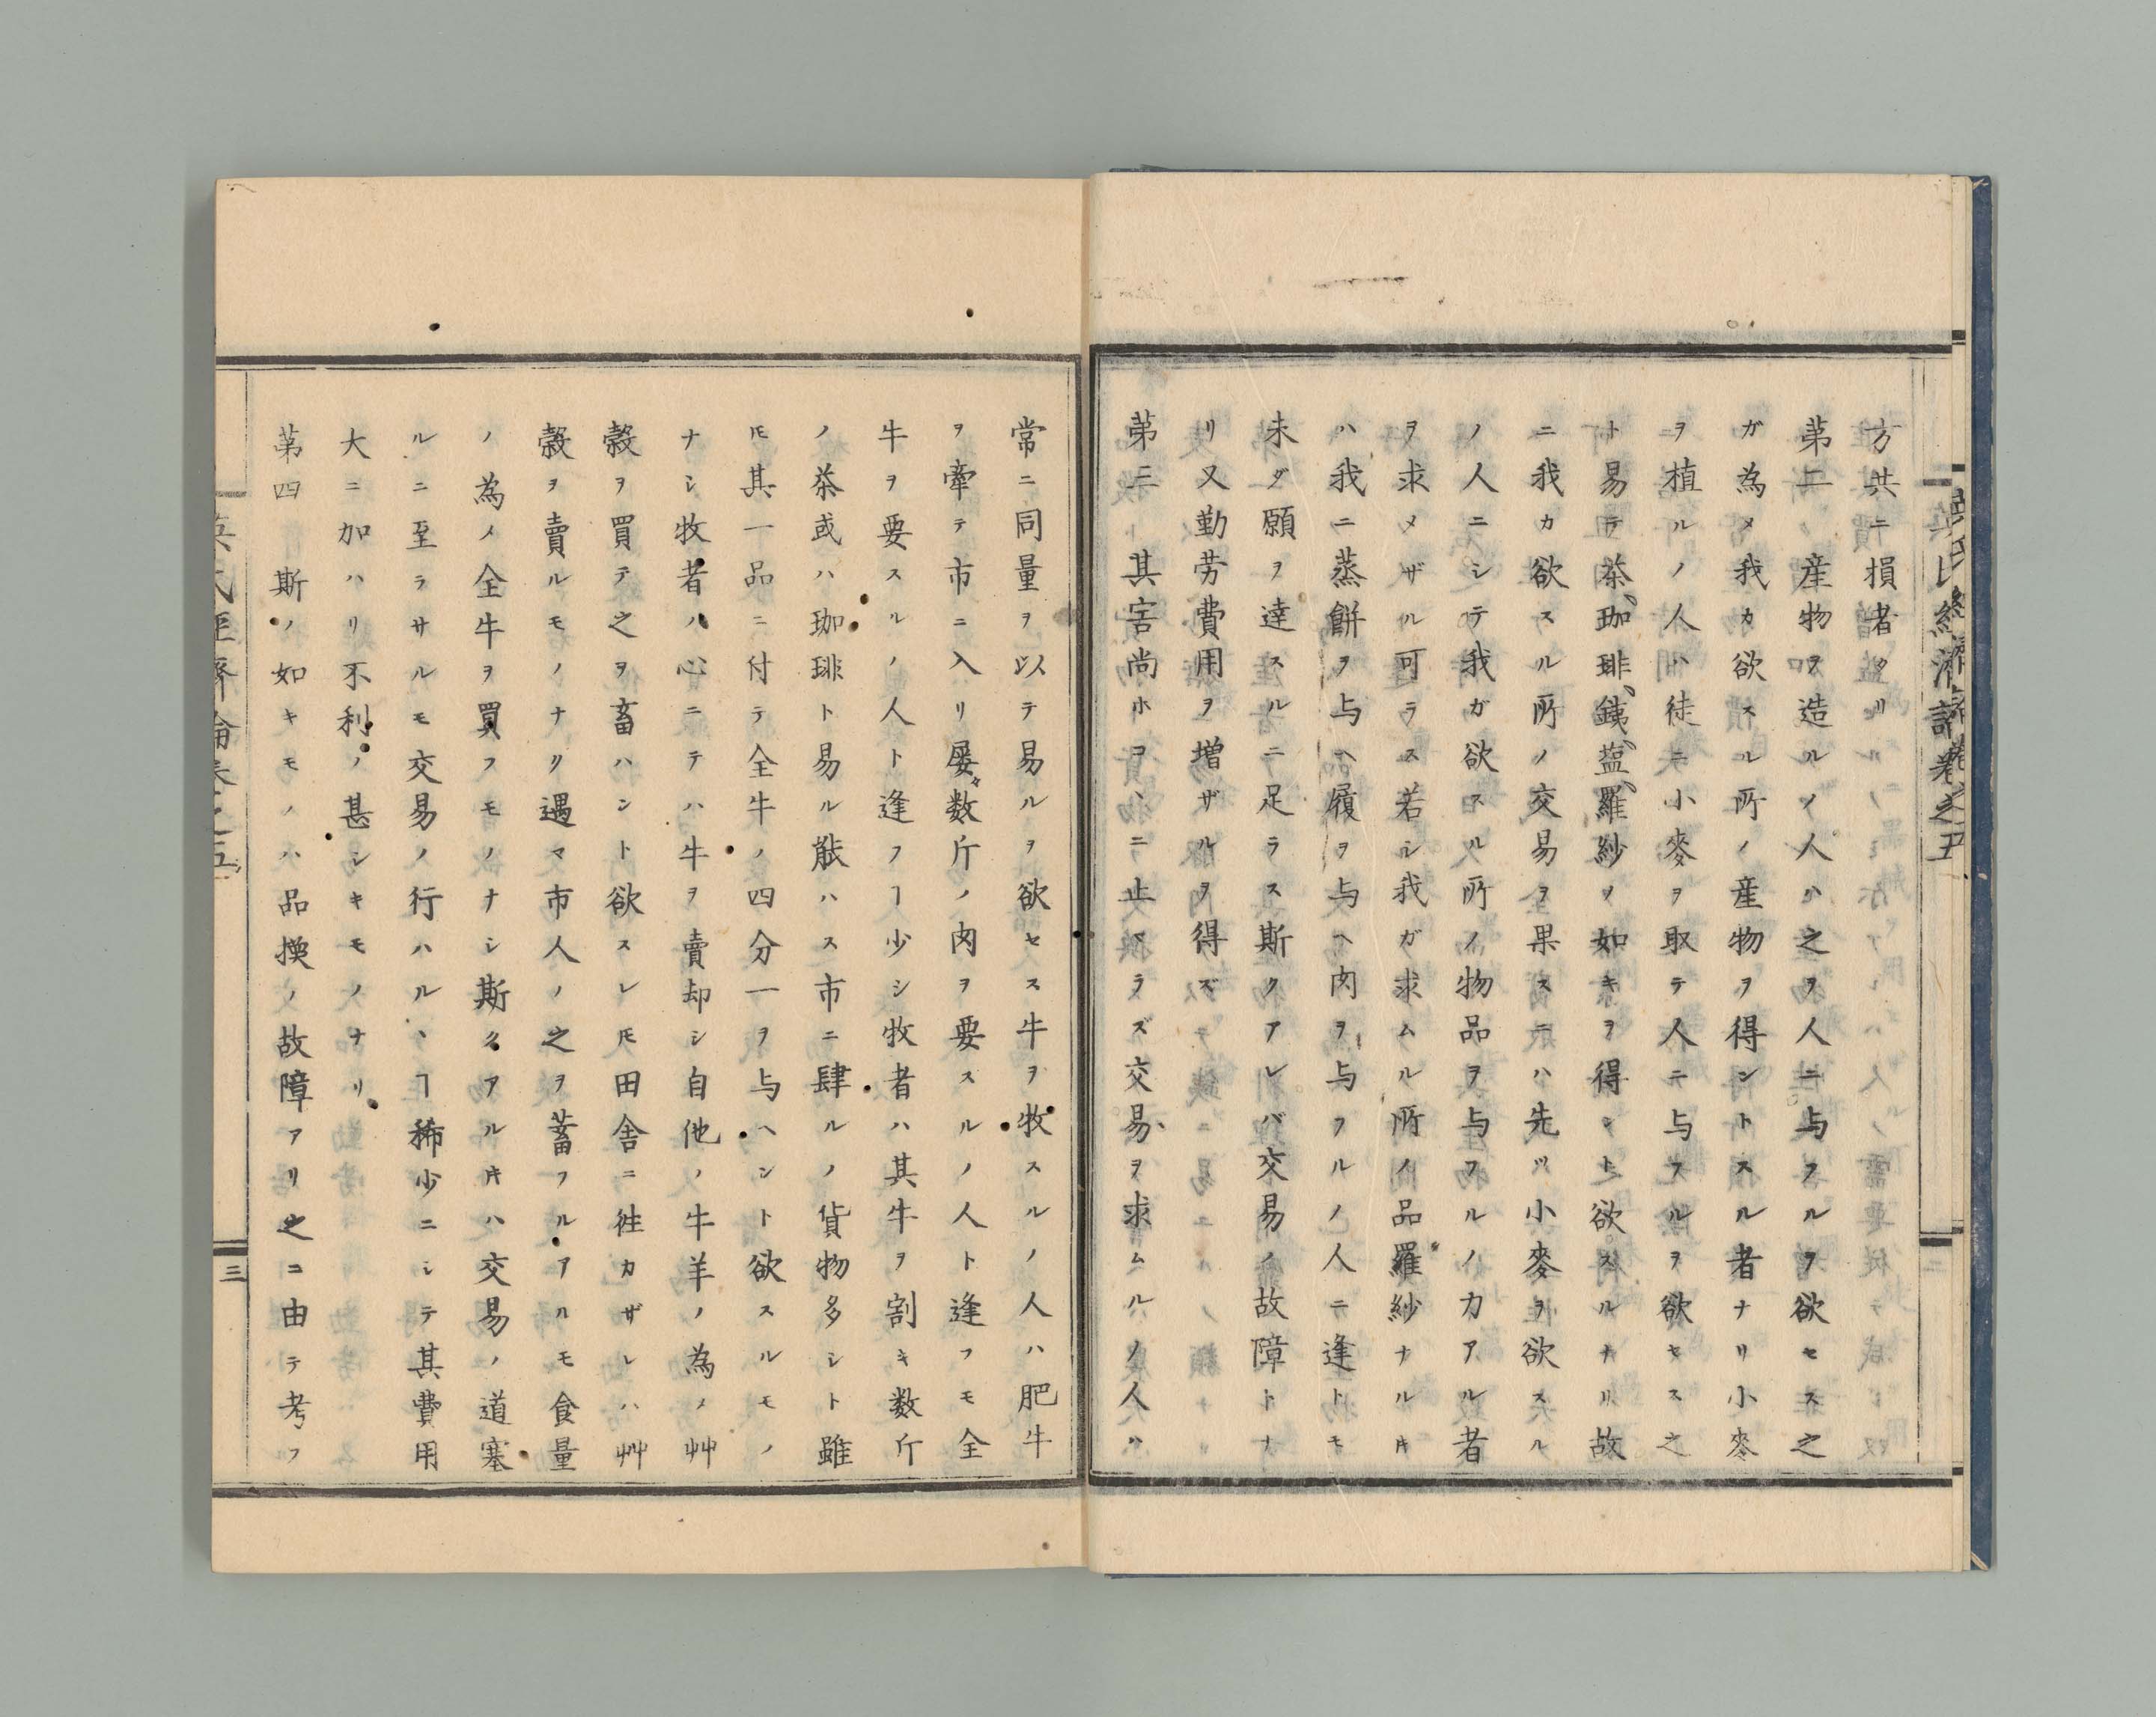 方共ニ損者タリ
第二　産物ヲ造ルノ人ハ之ヲ人ニ与フルヲ欲セス之
ガ為メ我カ欲スル所ノ産物ヲ得ントスル者ナリ小麥
ヲ植ルノ人ハ徒ニ小麥ヲ取テ人ニ与フルヲ欲セス之
ト易テ茶、珈琲、銕、塩、羅紗ノ如キヲ得ント欲スルナリ故
ニ我カ欲スル所ノ交易ヲ果スニハ先ツ小麥ヲ欲スル
ノ人ニシテ我ガ欲スル所ノ物品ヲ与フルノ力アル者
ヲ求メザル可ラス若シ我ガ求ムル所ノ品羅紗ナルㇵ
ハ我ニ蒸餅ヲ与ヘ履ヲ与ヘ肉ヲ与フルノ人ニ逢トモ
未ダ願ヲ達スルニ足ラス斯クアレバ交易ノ故障トナ
リ又勤労費用ヲ増ザルヲ得ズ
第三　其害尚ホコヽニ止マラズ交易ヲ求ムルノ人ハ
常ニ同量ヲ以テ易ルヲ欲セス牛ヲ牧スルノ人ハ肥牛
ヲ牽テ市ニ入リ屡々数斤ノ肉ヲ要スルノ人ト逢フモ全
牛ヲ要スルノ人ト逢フヿ少シ牧者ハ其牛ヲ割キ数斤
ノ茶或ハ珈琲ト易ル能ハス市ニ肆ルノ貨物多シト雖
𪜈其一品ニ付テ全牛ノ四分一ヲ与ヘント欲スルモノ
ナシ牧者ハ心ニテハ牛ヲ賣却シ自他ノ牛羊ノ為メ艸
穀ヲ買テ之ヲ畜ハント欲スレ𪜈田舎ニ徃カザレハ艸
穀ヲ賣ルモノナク遇マ市人ノ之ヲ蓄フルアルモ食量
ノ為メ全牛ヲ買フモノナシ斯クアル𬼀ハ交易ノ道塞
ルニ至ラサルモ交易ノ行ハルヽヿ稀少ニシテ其費用
大ニ加ハリ不利ノ甚シキモノナリ
第四　斯ノ如キモノハ品換ノ故障アリ之ニ由テ考フ
英氏経済論巻之五
三